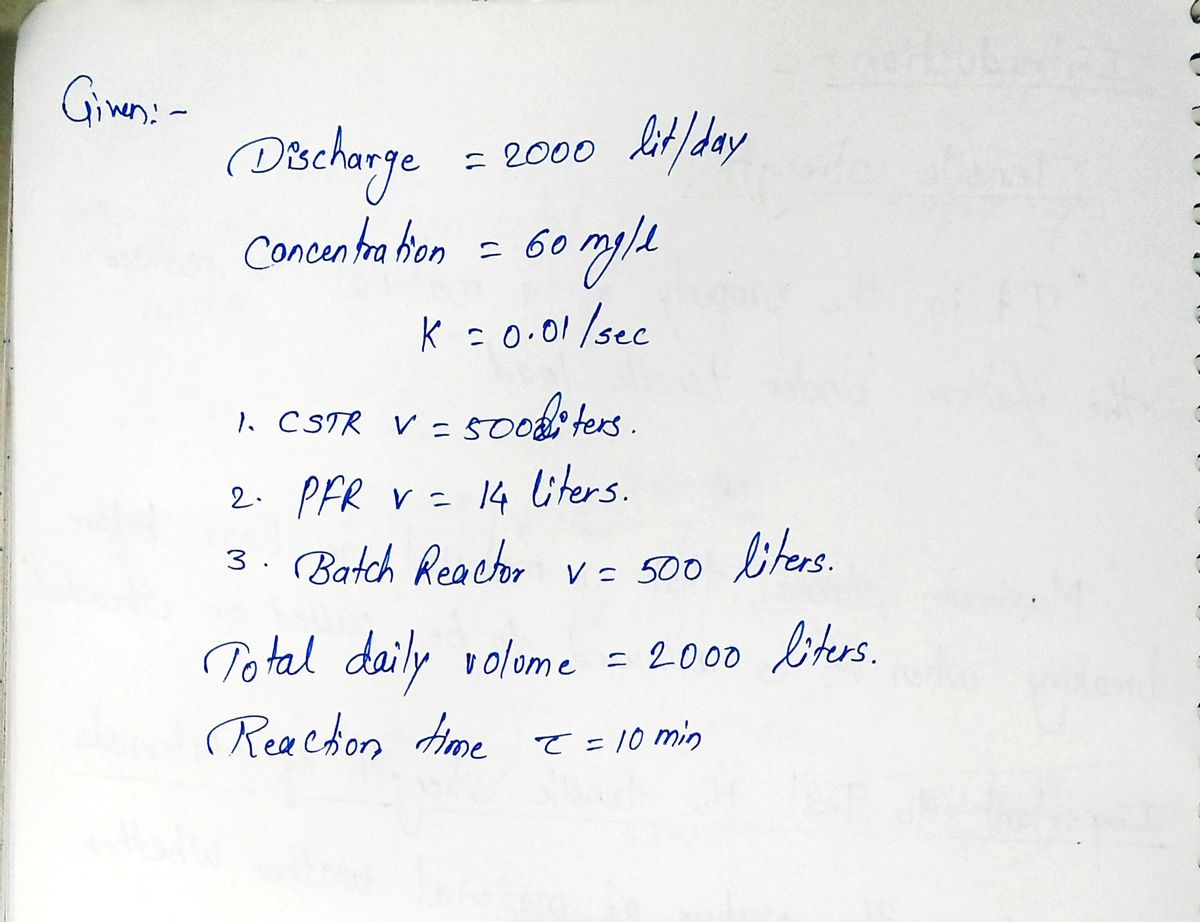 Given:-
Discharge = 2000 lit/day
Concentration = 60 mg/l
K = 0.01/sec
1. CSTR V = 500 liters.
2. PFR V = 14 liters.
3. Batch Reactor V = 500 liters.
Total daily volume = 2000 liters.
Reaction time τ = 10 min